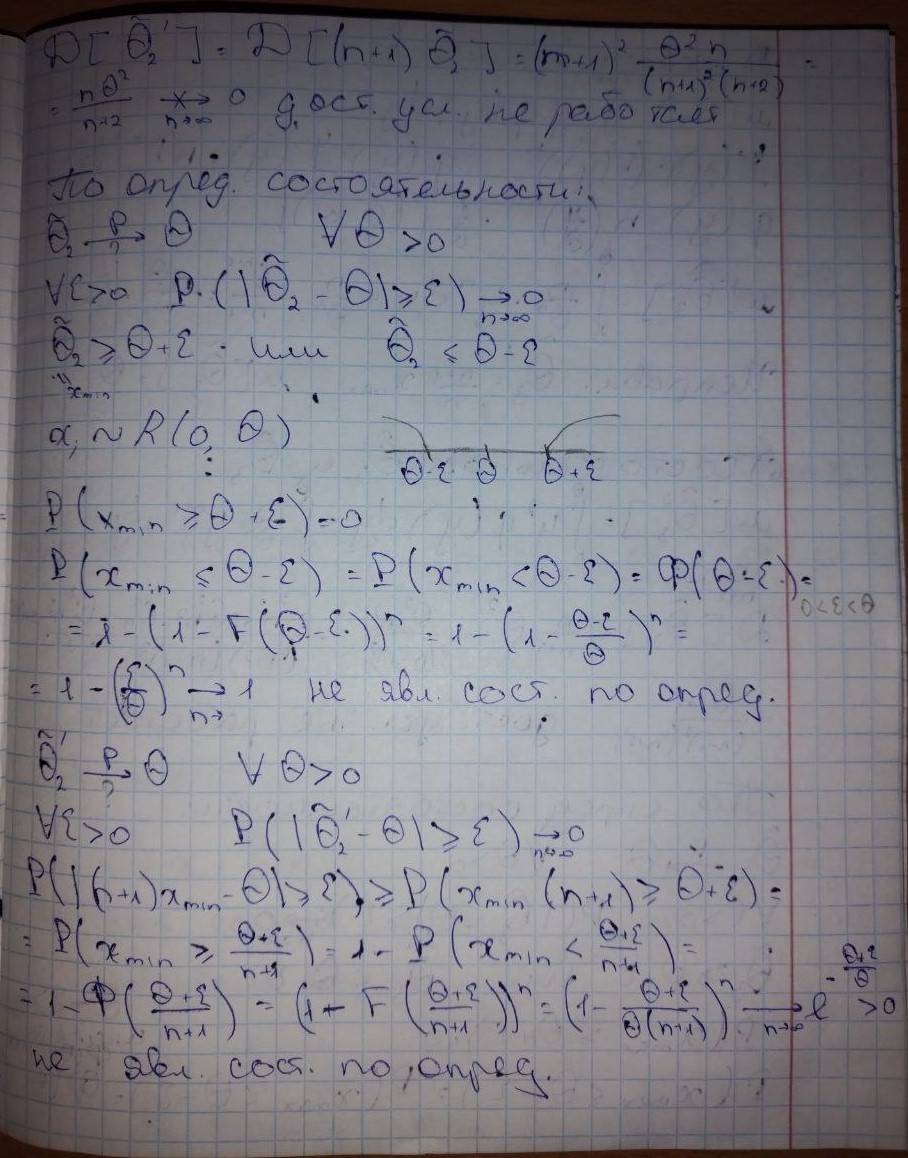 D[θ̃₂'] = D[(n+1) θ̃₂] = (n+1)² θ²n/((n+1)²(n+2)) =
= nθ²/(n+2) ↛ 0 n→∞ дост. усл. не работает
По опред. состоятельности:
θ̃₂ →ᴾ θ ? ∀θ >0
∀ε>0 P(|θ̃₂ - θ| ⩾ ε) → 0 n→∞
θ̃₂ ⩾ θ+ε или θ̃₂ ⩽ θ-ε
" x_min
x_i ~ R(0, θ)
θ-ε θ θ+ε
P(x_min ⩾ θ+ε) = 0
P(x_min ⩽ θ-ε) = P(x_min < θ-ε) = Φ(θ-ε) =
0<ε<θ
= 1-(1-F(θ-ε))ⁿ = 1-(1-(θ-ε)/θ)ⁿ =
= 1-(ε/θ)ⁿ → 1 n→ не явл. сост. по опред.
θ̃₂' →ᴾ θ ? ∀ θ>0
∀ε>0 P(|θ̃₂' - θ| ⩾ ε) → 0 n→∞
P(|(n+1)x_min - θ| ⩾ ε) ⩾ P(x_min (n+1) ⩾ θ+ε) =
= P(x_min ⩾ (θ+ε)/(n+1)) = 1 - P(x_min < (θ+ε)/(n+1)) =
= 1-Φ((θ+ε)/(n+1)) = (1-F((θ+ε)/(n+1)))ⁿ = (1-(θ+ε)/(θ(n+1)))ⁿ → n→∞ e^(-(θ+ε)/θ) >0
не явл. сост. по опред.